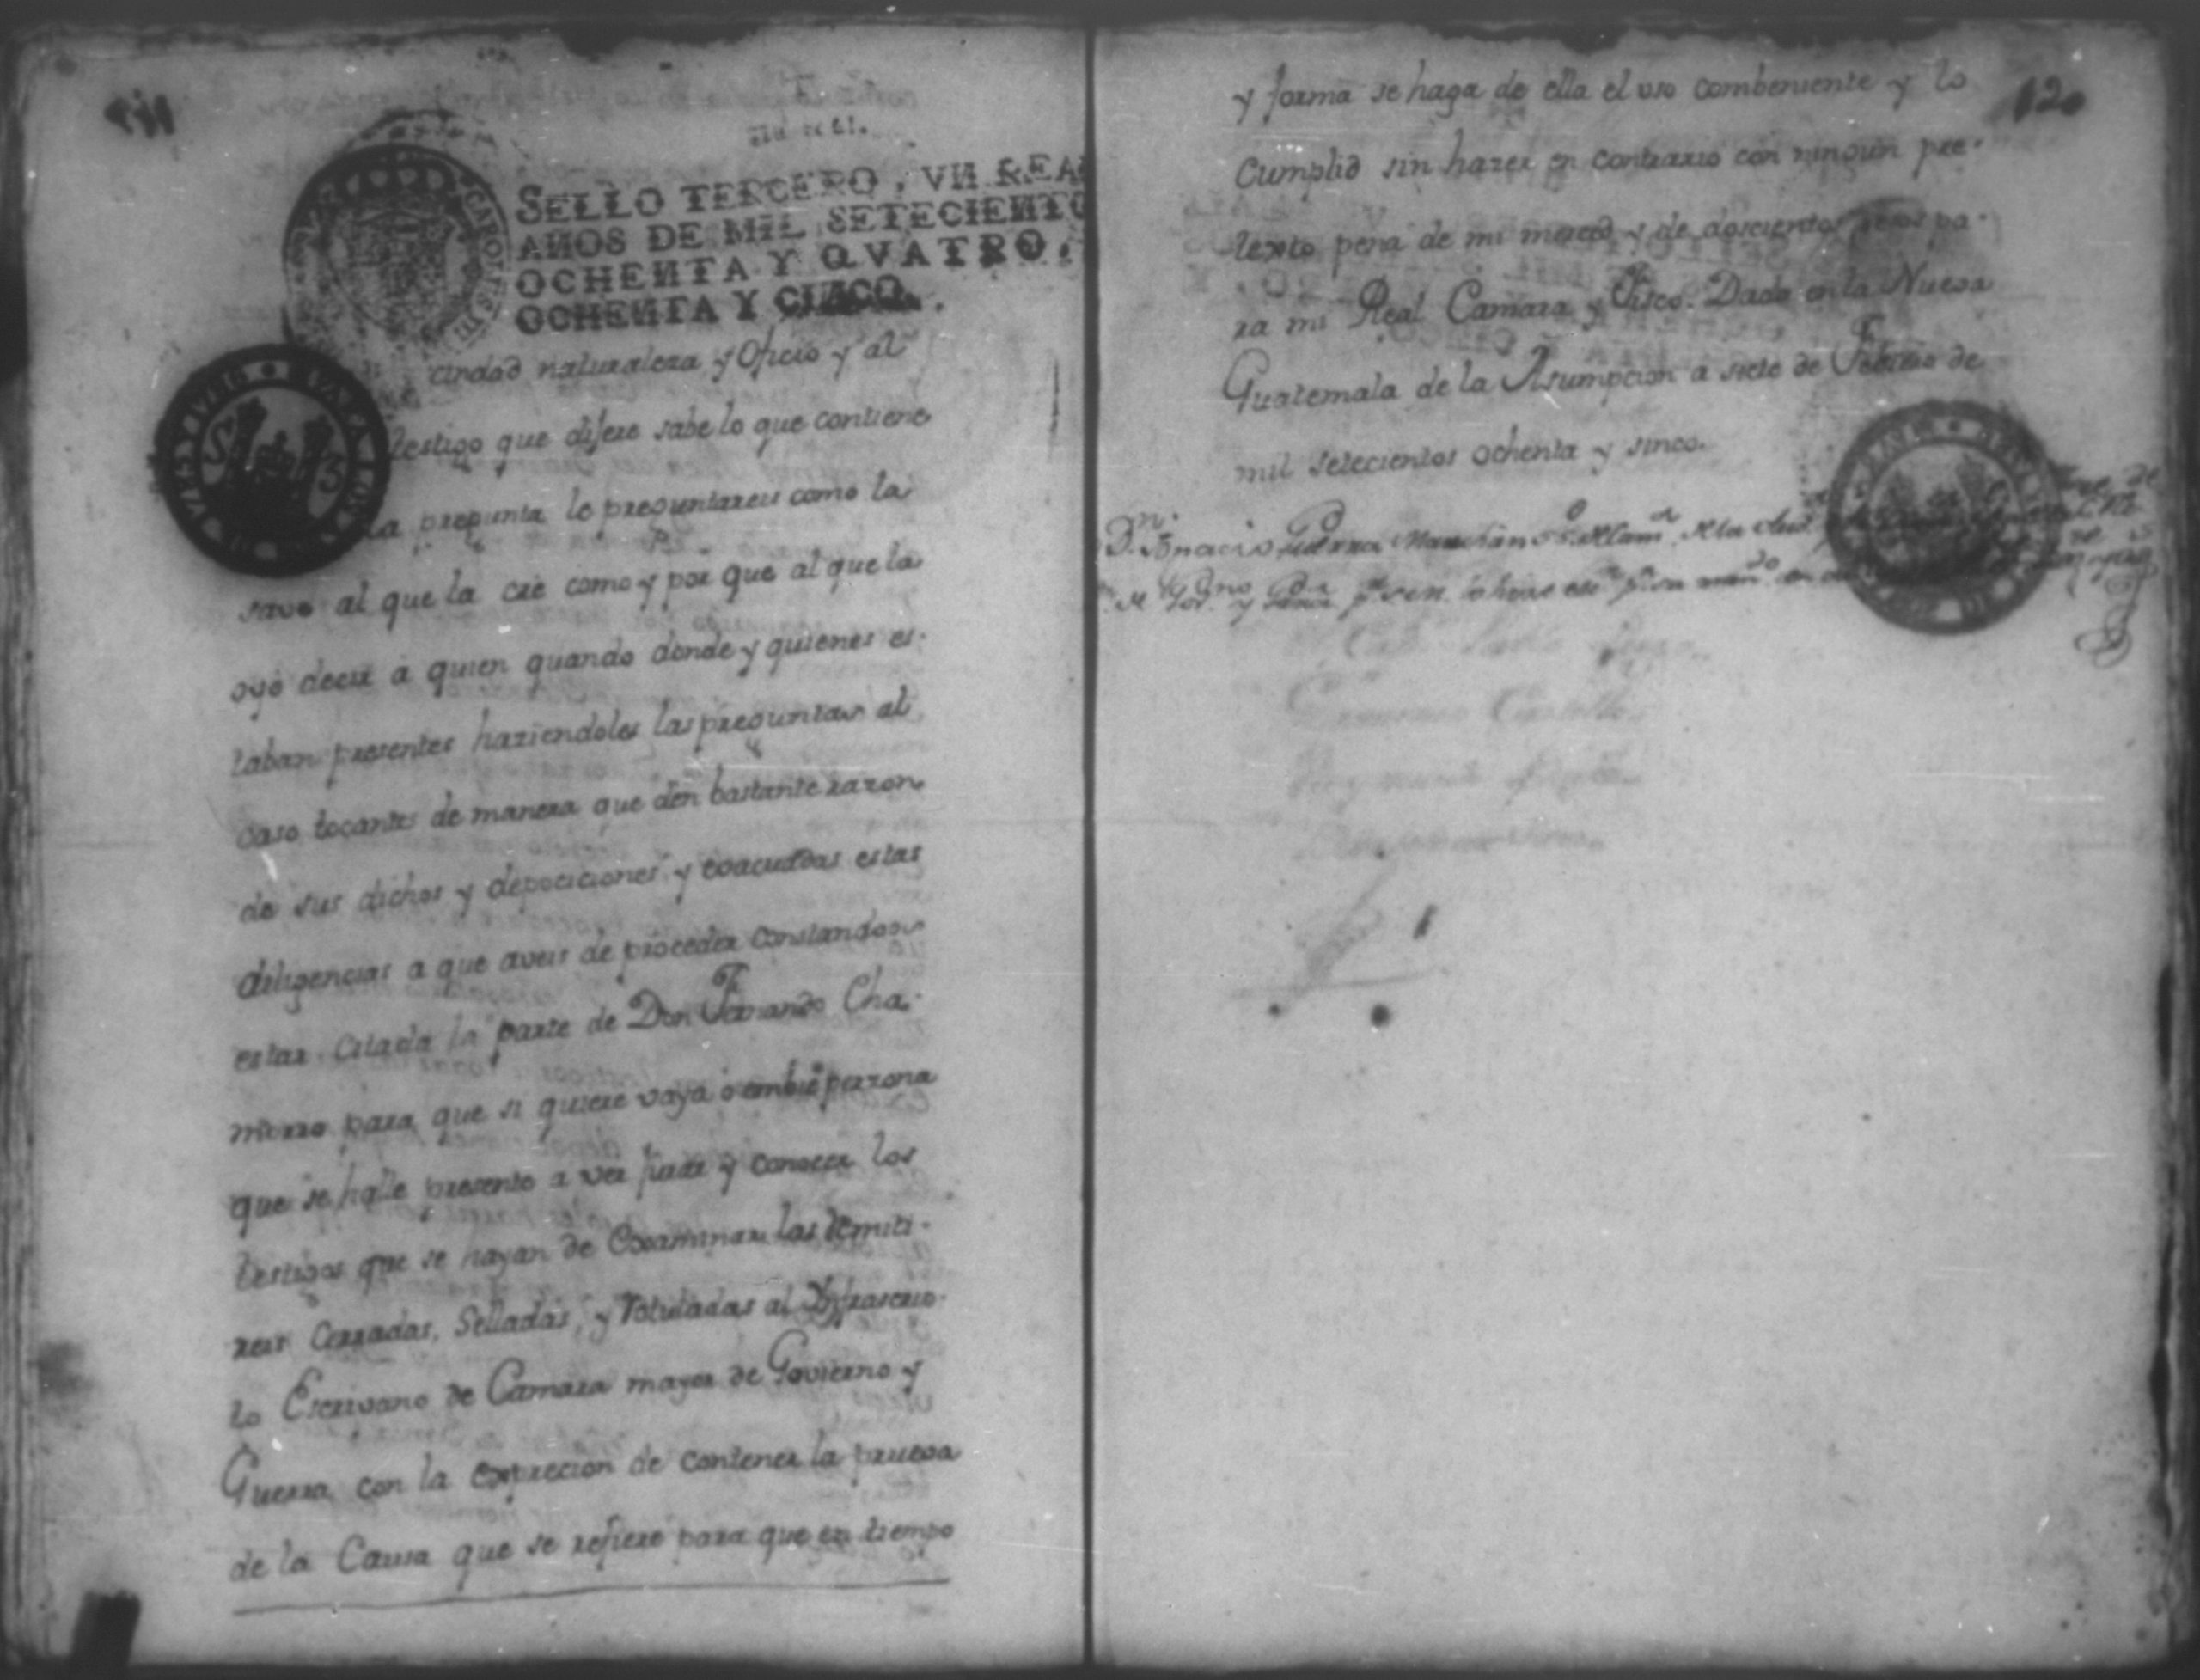 Vn real.
SELLO TERCERO, VN REAL
AÑOS DE MIL SETECIENTO
OCHENTA Y QVATRO,
OCHENTA Y CINCO.
CAROLUS III
cindad naturaleza y Oficio y al
testigo que dixere sabe lo que contiene
la pregunta le preguntareis como la
save al que la cre como y por que al que la
oyó decir á quien quando donde y quienes es-
taban presentes haziendoles las preguntas al
caso tocantes de manera que dén bastante razon
de sus dichos y deposiciones y evacuadas estas
diligencias a que aveis de proceder constandoos
estar citada la parte de Don Fernando Cha-
morro para que si quiere vaya ó embie perzona
que se halle presente a ver jurar y conocer los
testigos que se hayan de Examinar las remiti-
reis Cerradas, Selladas, y rotuladas al Ynfrascrip-
to Escrivano de Camara mayor de Govierno y
Guerra con la exprecion de contener la prueva
de la Causa que se refiere para que en tiempo
120
y forma se haga de ella el uso combeniente y lo
Cumplid sin hazer en contrario con ningun pre-
texto pena de mi merced y de doscientos pesos pa-
ra mi Real Camara y Fisco. Dada en la Nueva
Guatemala de la Asumpcion a siete de Febrero de
mil setecientos ochenta y sinco.
Dn. Ygnacio Guerra Marchan